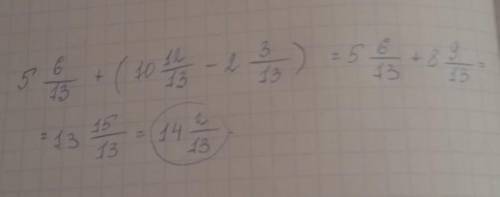 5 6/13 + (10 12/13 - 2 3/13) = 5 6/13 + 8 9/13 =
= 13 15/13 = 14 2/13